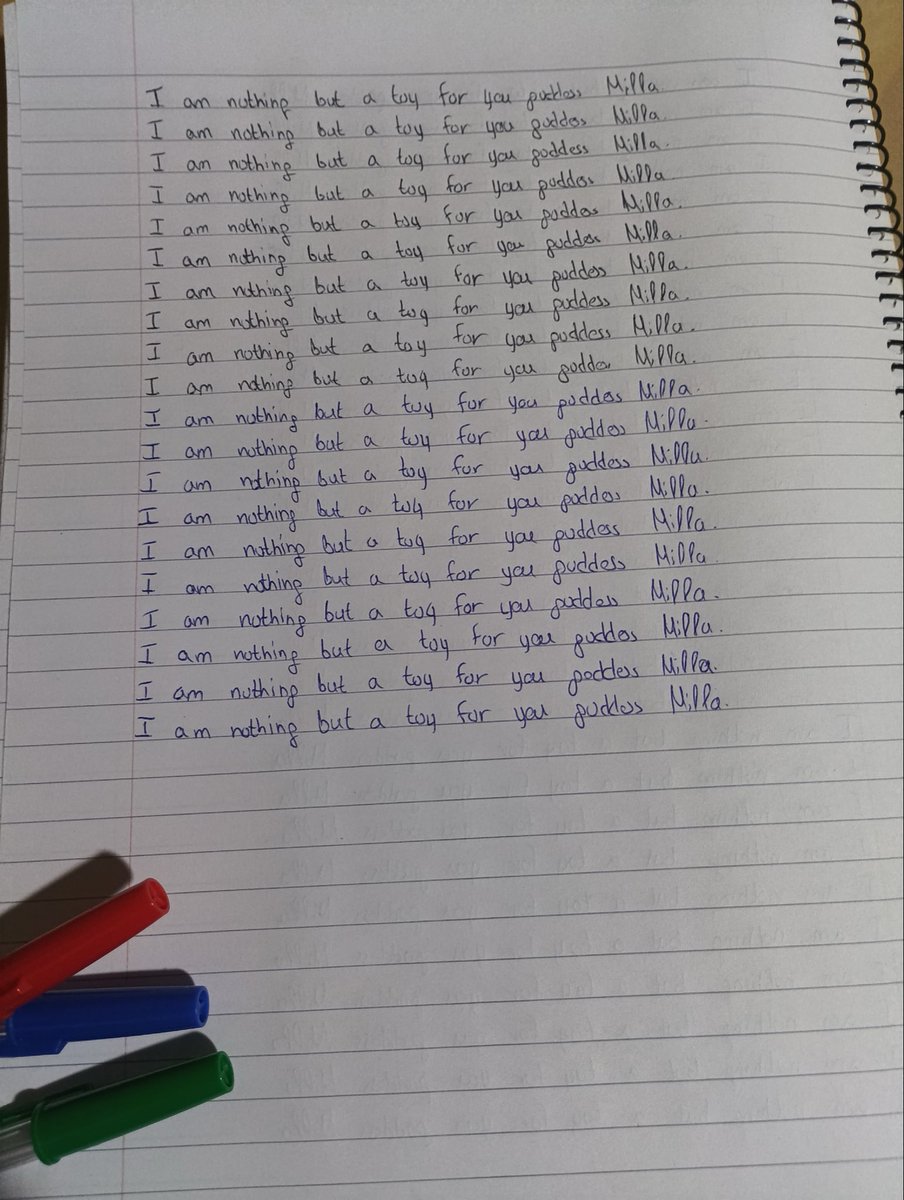 I am nothing but a toy for you goddess Milla.
I am nothing but a toy for you goddess Milla.
I am nothing but a toy for you goddess Milla.
I am nothing but a toy for you goddess Milla.
I am nothing but a toy for you goddess Milla.
I am nothing but a toy for you goddess Milla.
I am nothing but a toy for you goddess Milla.
I am nothing but a toy for you goddess Milla.
I am nothing but a toy for you goddess Milla.
I am nothing but a toy for you goddess Milla.
I am nothing but a toy for you goddess Milla.
I am nothing but a toy for you goddess Milla.
I am nothing but a toy for you goddess Milla.
I am nothing but a toy for you goddess Milla.
I am nothing but a toy for you goddess Milla.
I am nothing but a toy for you goddess Milla.
I am nothing but a toy for you goddess Milla.
I am nothing but a toy for you goddess Milla.
I am nothing but a toy for you goddess Milla.
I am nothing but a toy for you goddess Milla.